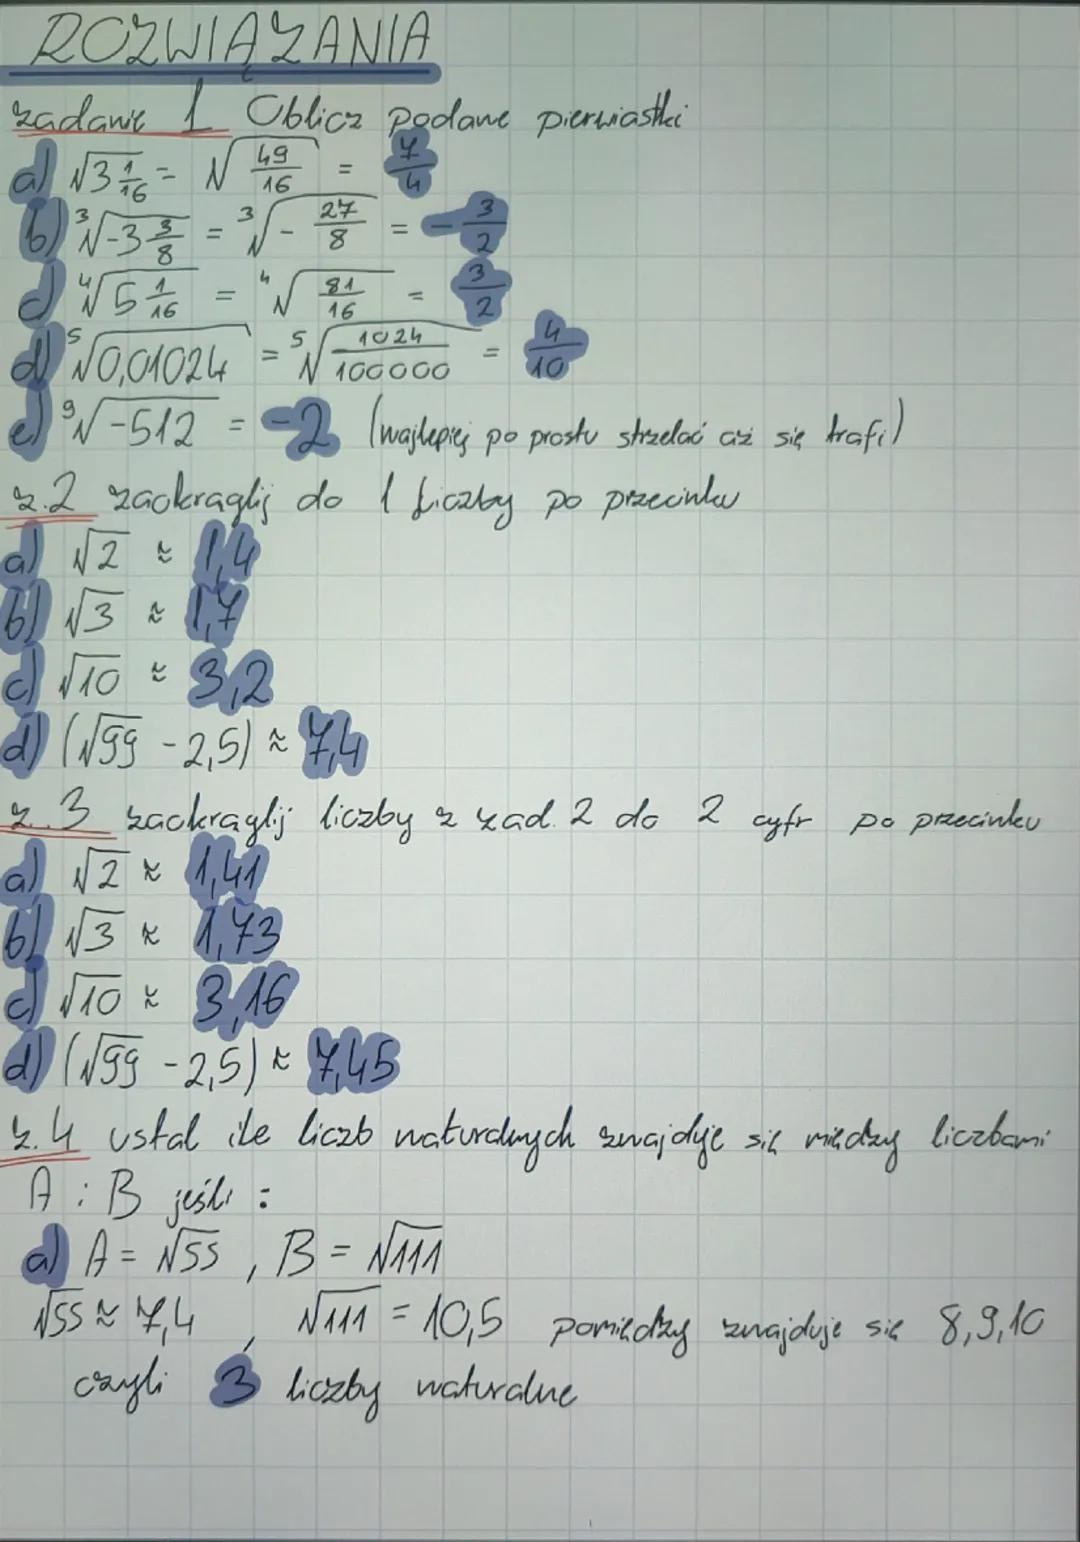 ROZWIĄZANIA
zadanie 1 Oblicz podane pierwiastki
a) √3 1/16 = √49/16 = 7/4
b) ³√-3 3/8 = ³√- 27/8 = - 3/2
c) ⁴√5 1/16 = ⁴√81/16 = 3/2
d) ⁵√0,01024 = ⁵√1024/100000 = 4/10
e) ⁹√-512 = -2 (najlepiej po prostu strzelać aż się trafi)
z.2 zaokrąglij do 1 liczby po przecinku
a) √2 ≈ 1,4
b) √3 ≈ 1,7
c) √10 ≈ 3,2
d) (√99 - 2,5) ≈ 7,4
z.3 zaokrąglij liczby z zad. 2 do 2 cyfr po przecinku
a) √2 ≈ 1,41
b) √3 ≈ 1,73
c) √10 ≈ 3,16
d) (√99 - 2,5) ≈ 7,45
z.4 ustal ile liczb naturalnych znajdyje się między liczbami
A i B jeśli :
a) A = √55 , B = √111
√55 ≈ 7,4 , √111 = 10,5 pomiędzy znajduje się 8,9,10
czyli 3 liczby naturalne